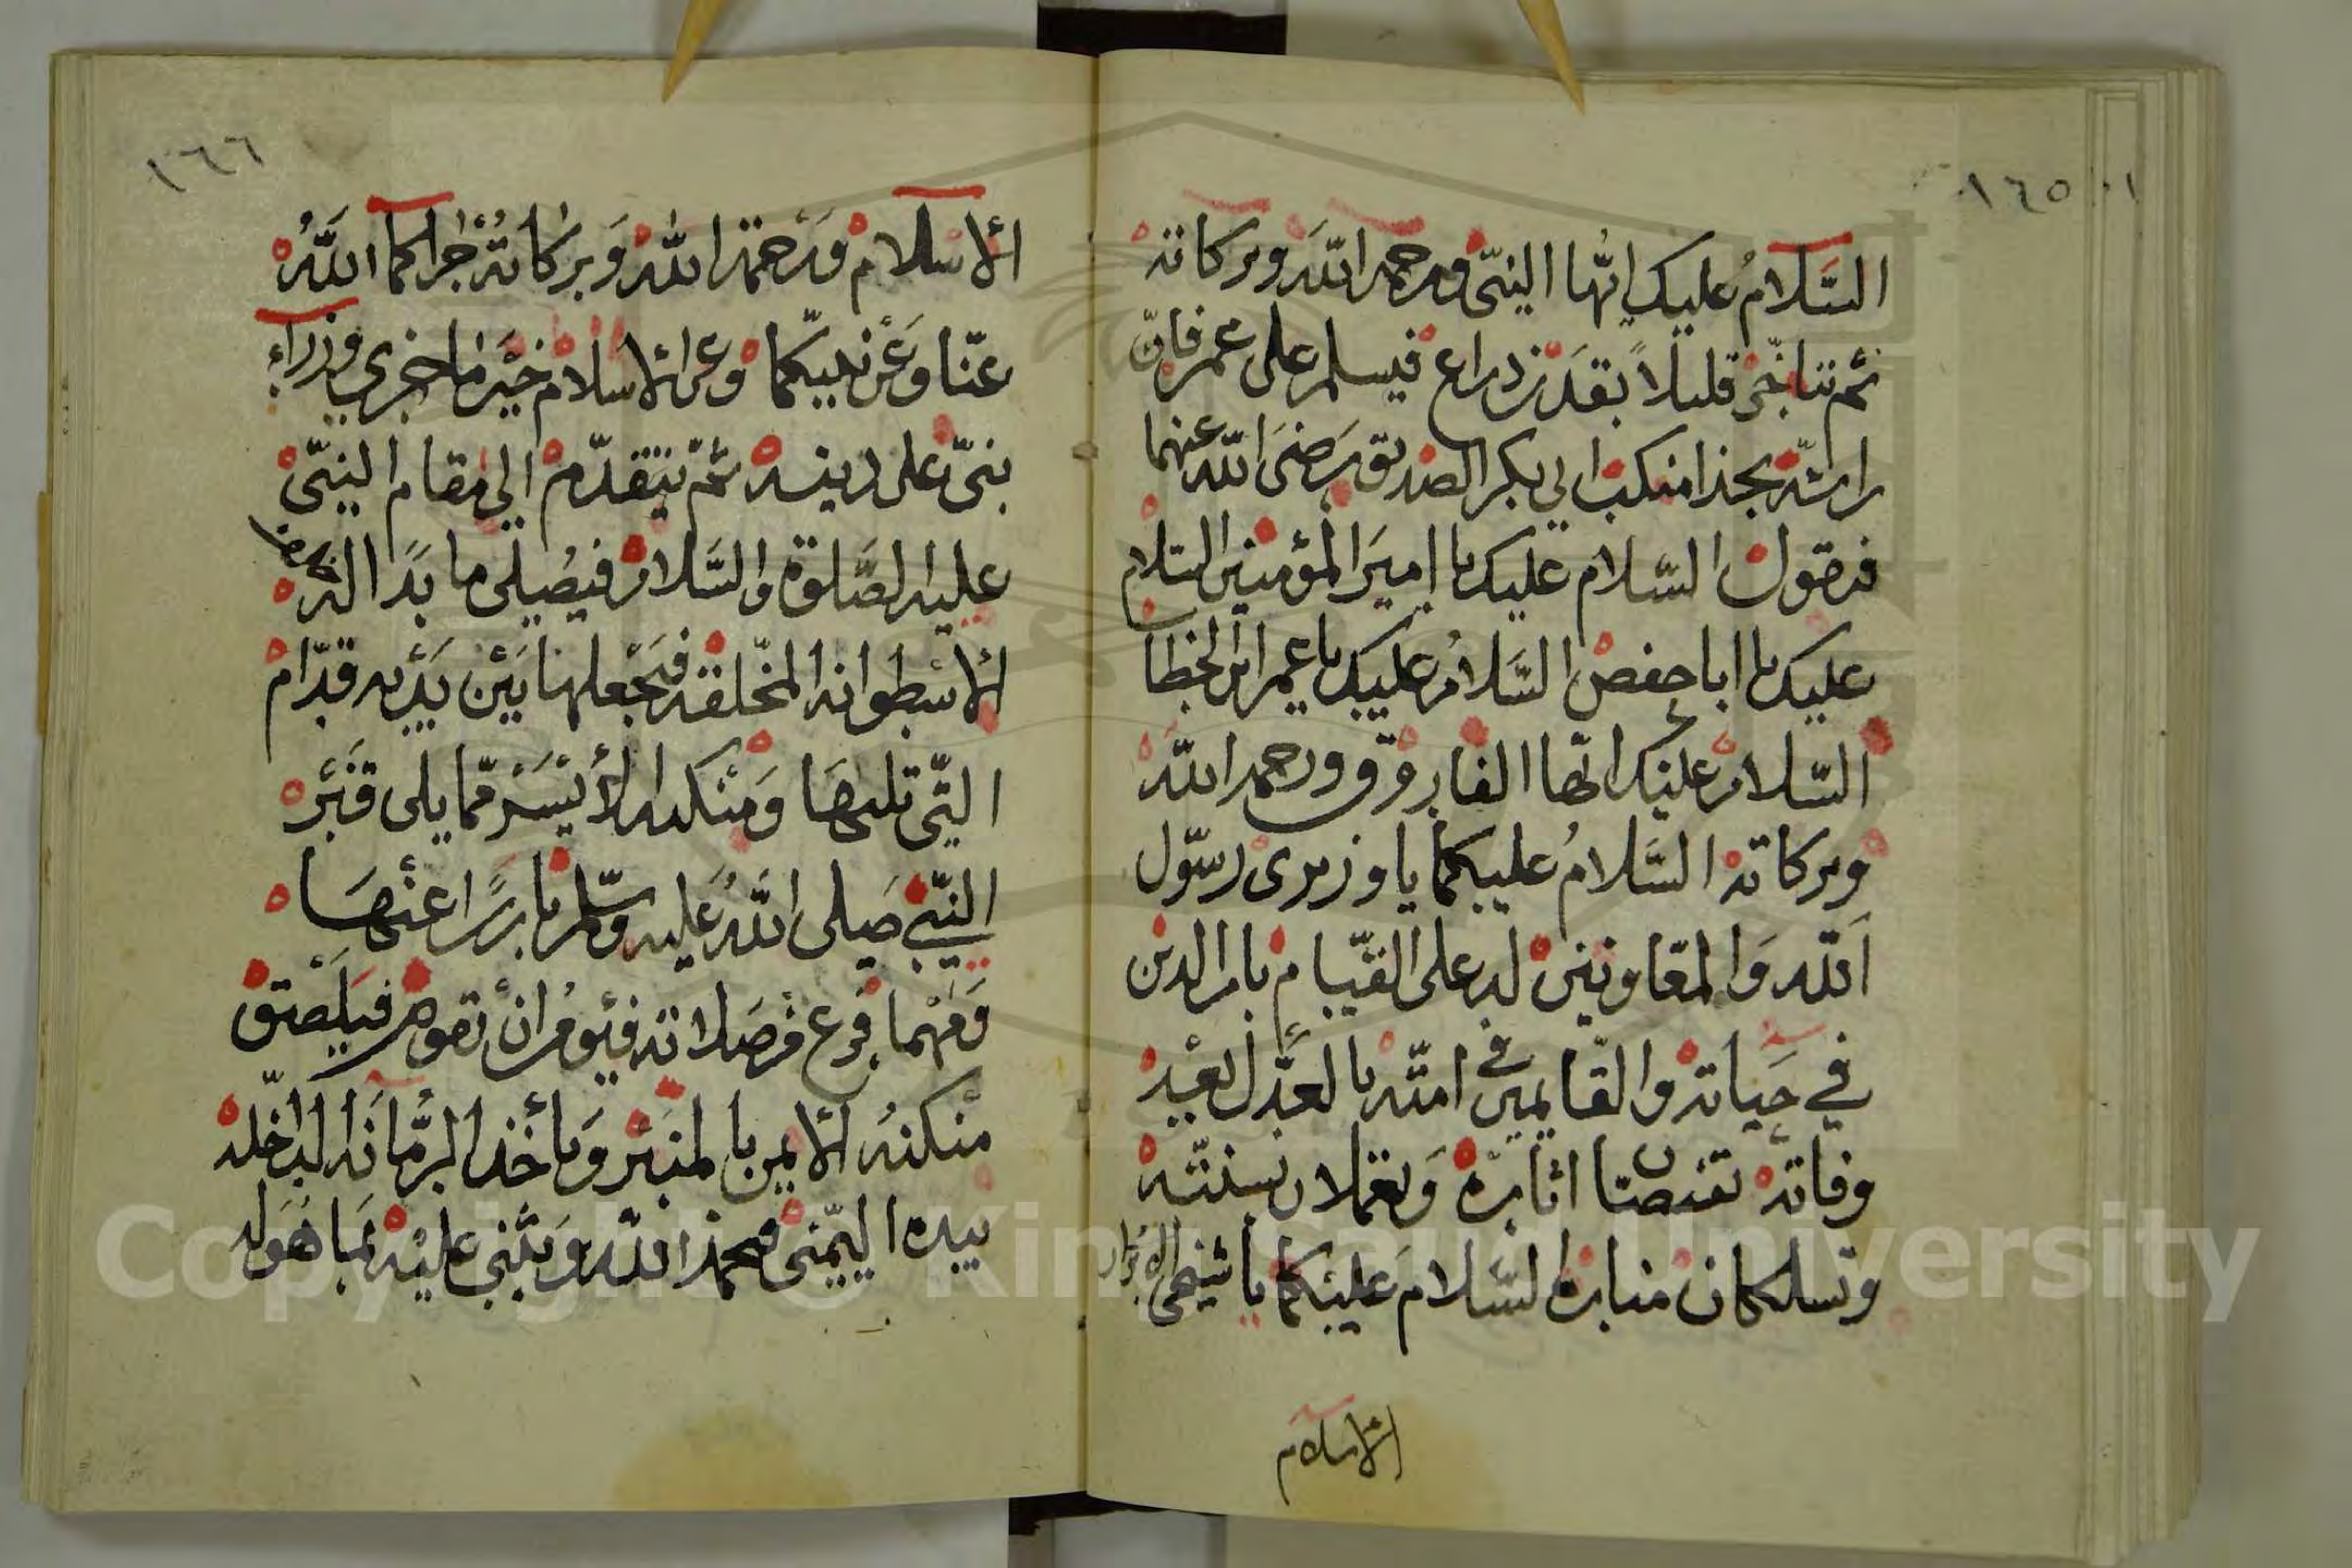 ١٦٥
السَّلامُ عليك ايّها النبيّ ورحمة اللّه وبركاته
ثم تتاخّر قليلاً بقدر ذراع فيسلم على عمر فانّ
راسه بحذا منكب ابي بكر الصديق رضيَ اللّه عنهما
فتقول السّلام عليك يا اميرَ المؤمنين السلام
عليك يا ابا حفص السَّلامُ عليك يا عمر ابن الخطاب
السّلام عليك ايّها الفاروق ورحمة اللّه
وبركاته السَّلامُ عليكما يا وزيرى رسول
اللّه وَالمعَاونين له على القيام بامر الدين
في حَياته والقايمين في امّته بالعدل بعْد
وفاته تقتصّان اثاره وَتعملان بسنّته
وتسلكان مناره السَّلامَ عليْكما يا شيخى الابرار
الاسلام
١٦٦
الاسلام وَرَحمة اللّه وَبركاتهُ جزاكما اللَّهُ
عنّا وَعَن نبيّكما وعن الاسلام خيْر ما جزي وزراء
نبيّ على دينه ثم يتقدّم الى مقام النبيّ
عليه الصَّلوة والسَّلام فيصلى ما بدَا له
الاسْطوانه المخلّقه فيجْعلها بَيْن يَدَيْه قدّام
التّى تليهَا وَمنكبه الأيْسَر ممّا يلى قبْره
النبيّ صَلى اللَّهُ عَليه وسلّم بارزًا عنْهَا
وَمَهْما فرغ من صَلاته فيؤمر انْ تقوم فيَلصَق
منكبهُ الايمن بالمنبَر وَياخْذ الرّمّانه الدّاخله
بيده اليمْنى فيحمد اللّه وَيثنى عليْه بمَا هُوَ له